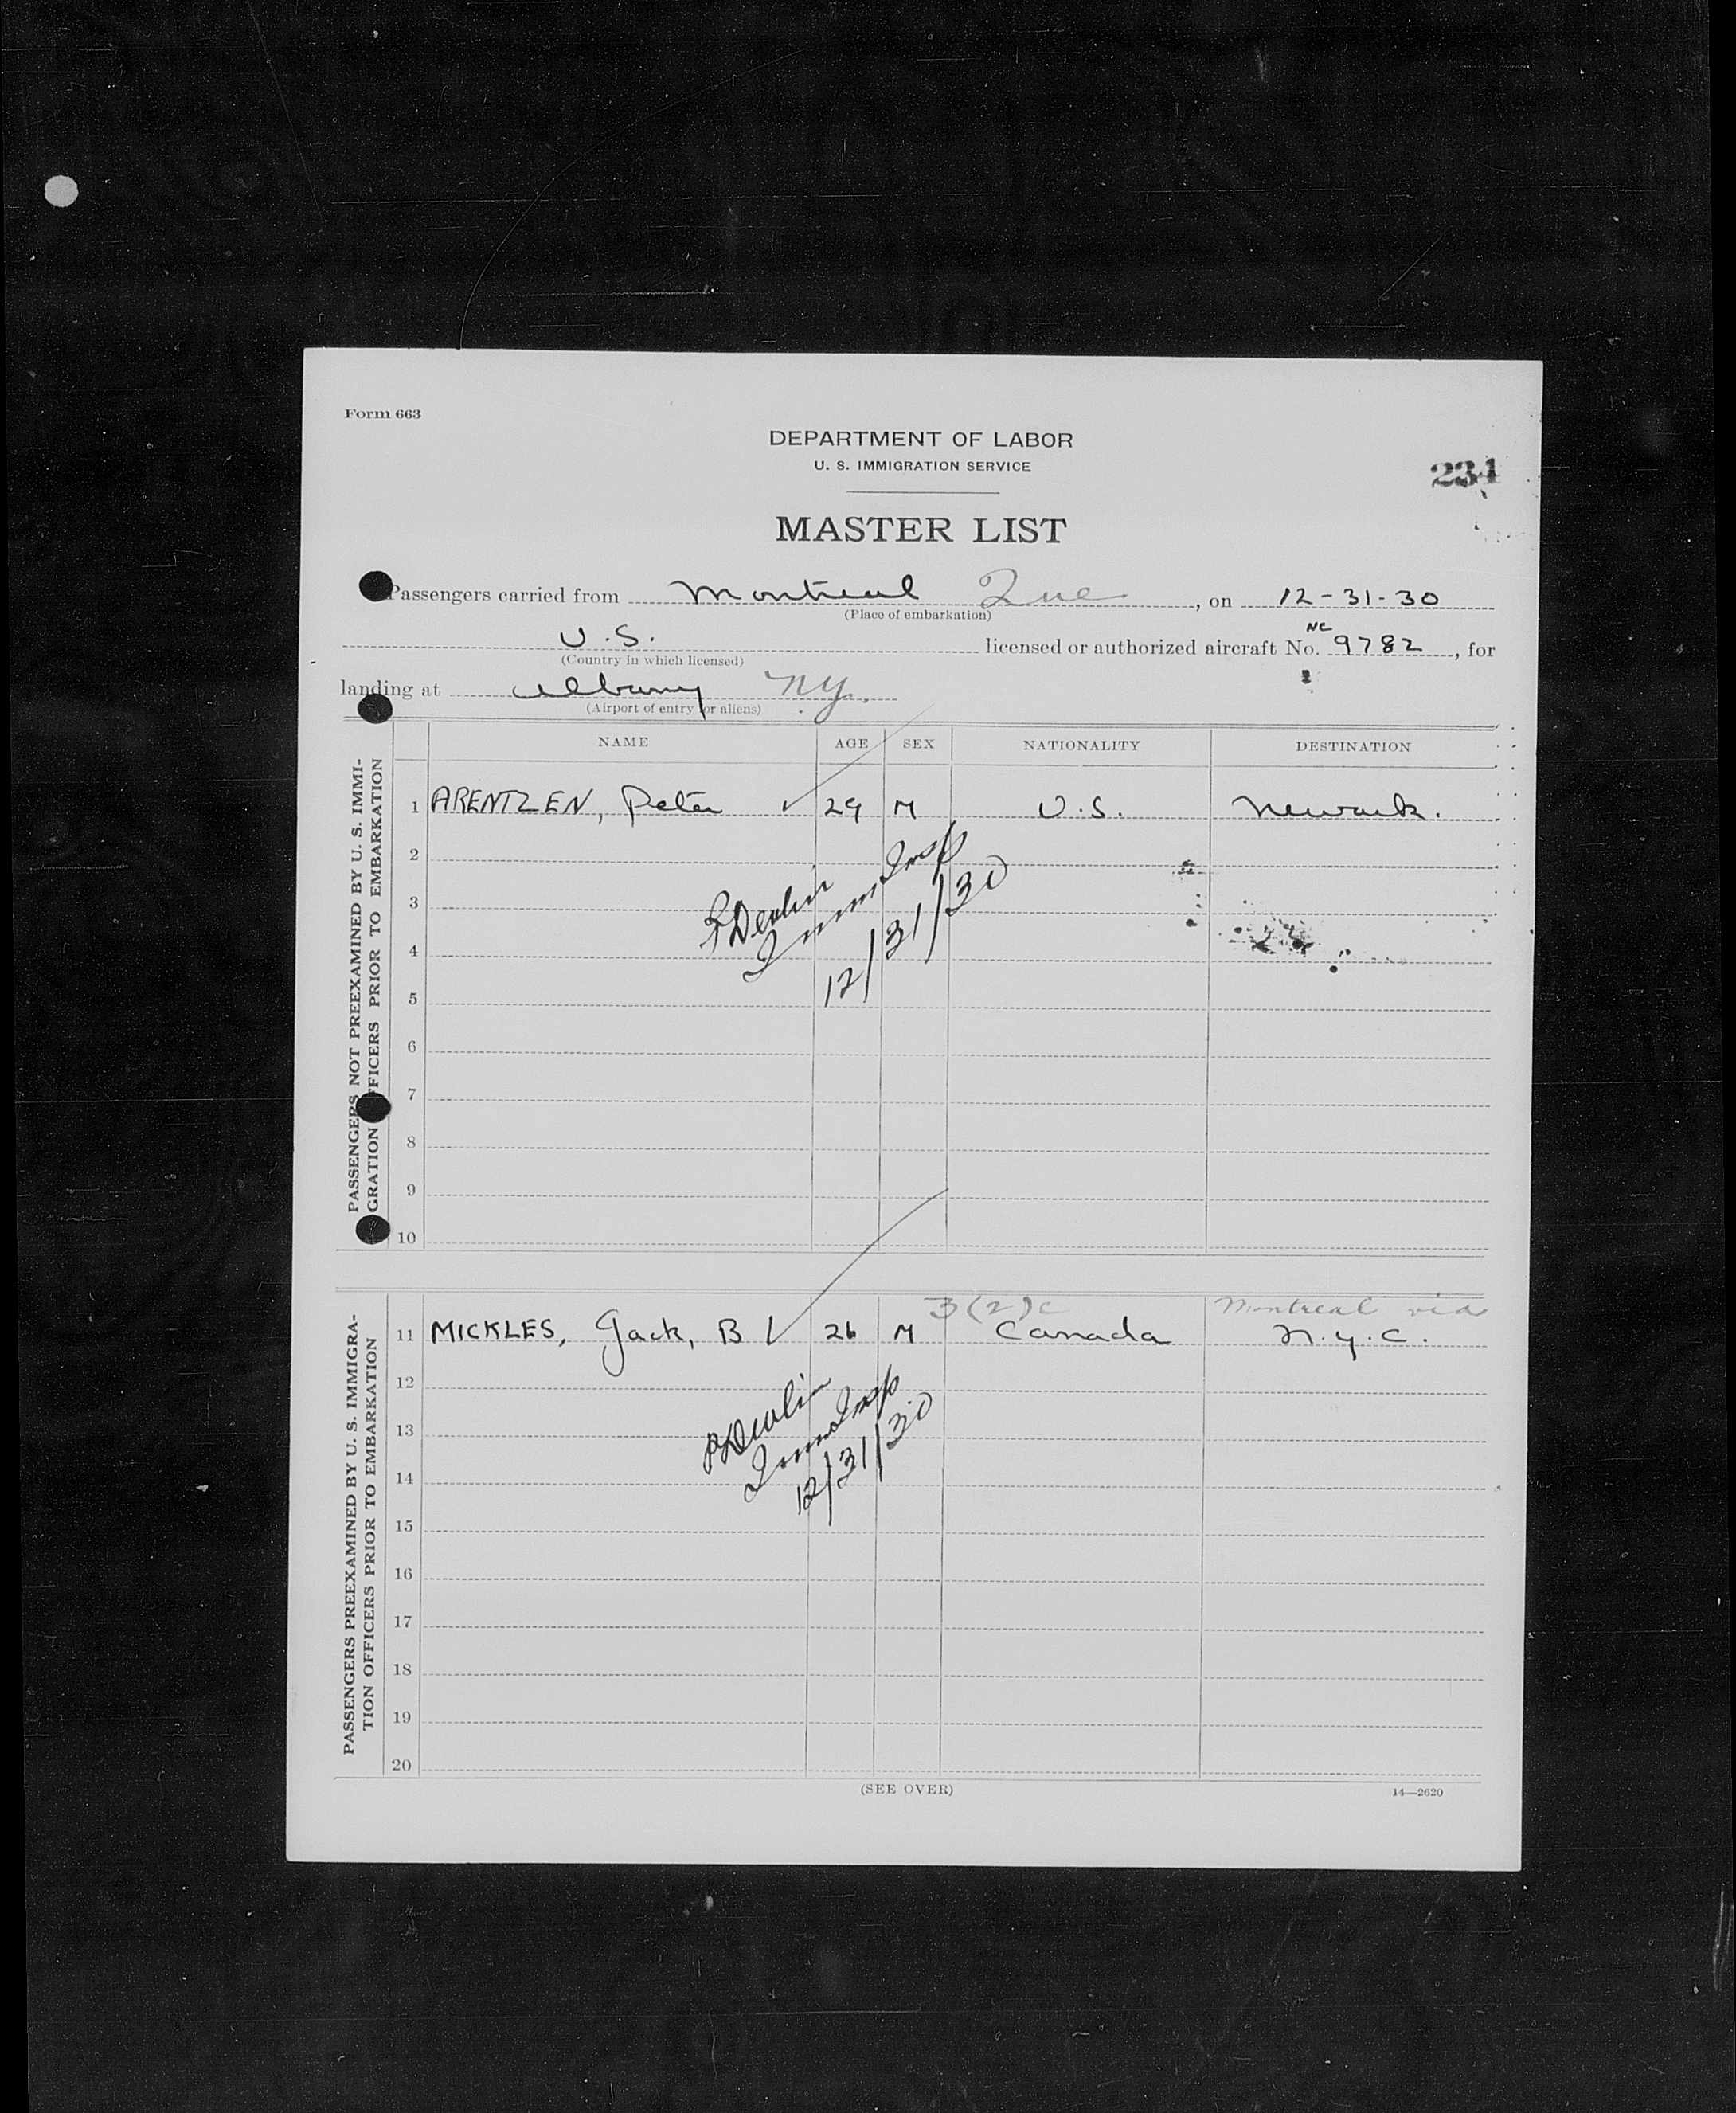 Form 663
DEPARTMENT OF LABOR
U. S. IMMIGRATION SERVICE
234
MASTER LIST
Passengers carried from Montreal Que, on 12-31-30
(Place of embarkation)
U.S. licensed or authorized aircraft No. NC 9782, for
(Country in which licensed)
landing at Albany N.Y.
(Airport of entry for aliens)
NAME AGE SEX NATIONALITY DESTINATION
PASSENGERS NOT PREEXAMINED BY U. S. IMMI-
GRATION OFFICERS PRIOR TO EMBARKATION
1 ARENTZEN, Peter ✓ 29 M U.S. Newark.
2
3
4
5
6
7
8
9
10
Devlin
Imm Insp
12/31/30
PASSENGERS PREEXAMINED BY U. S. IMMIGRA-
TION OFFICERS PRIOR TO EMBARKATION
3(2)c Montreal via
11 MICKLES, Jack, B ✓ 26 M Canada N.Y.C.
12
13
14
15
16
17
18
19
20
Devlin
Imm Insp
12/31/30
(SEE OVER)
14—2620